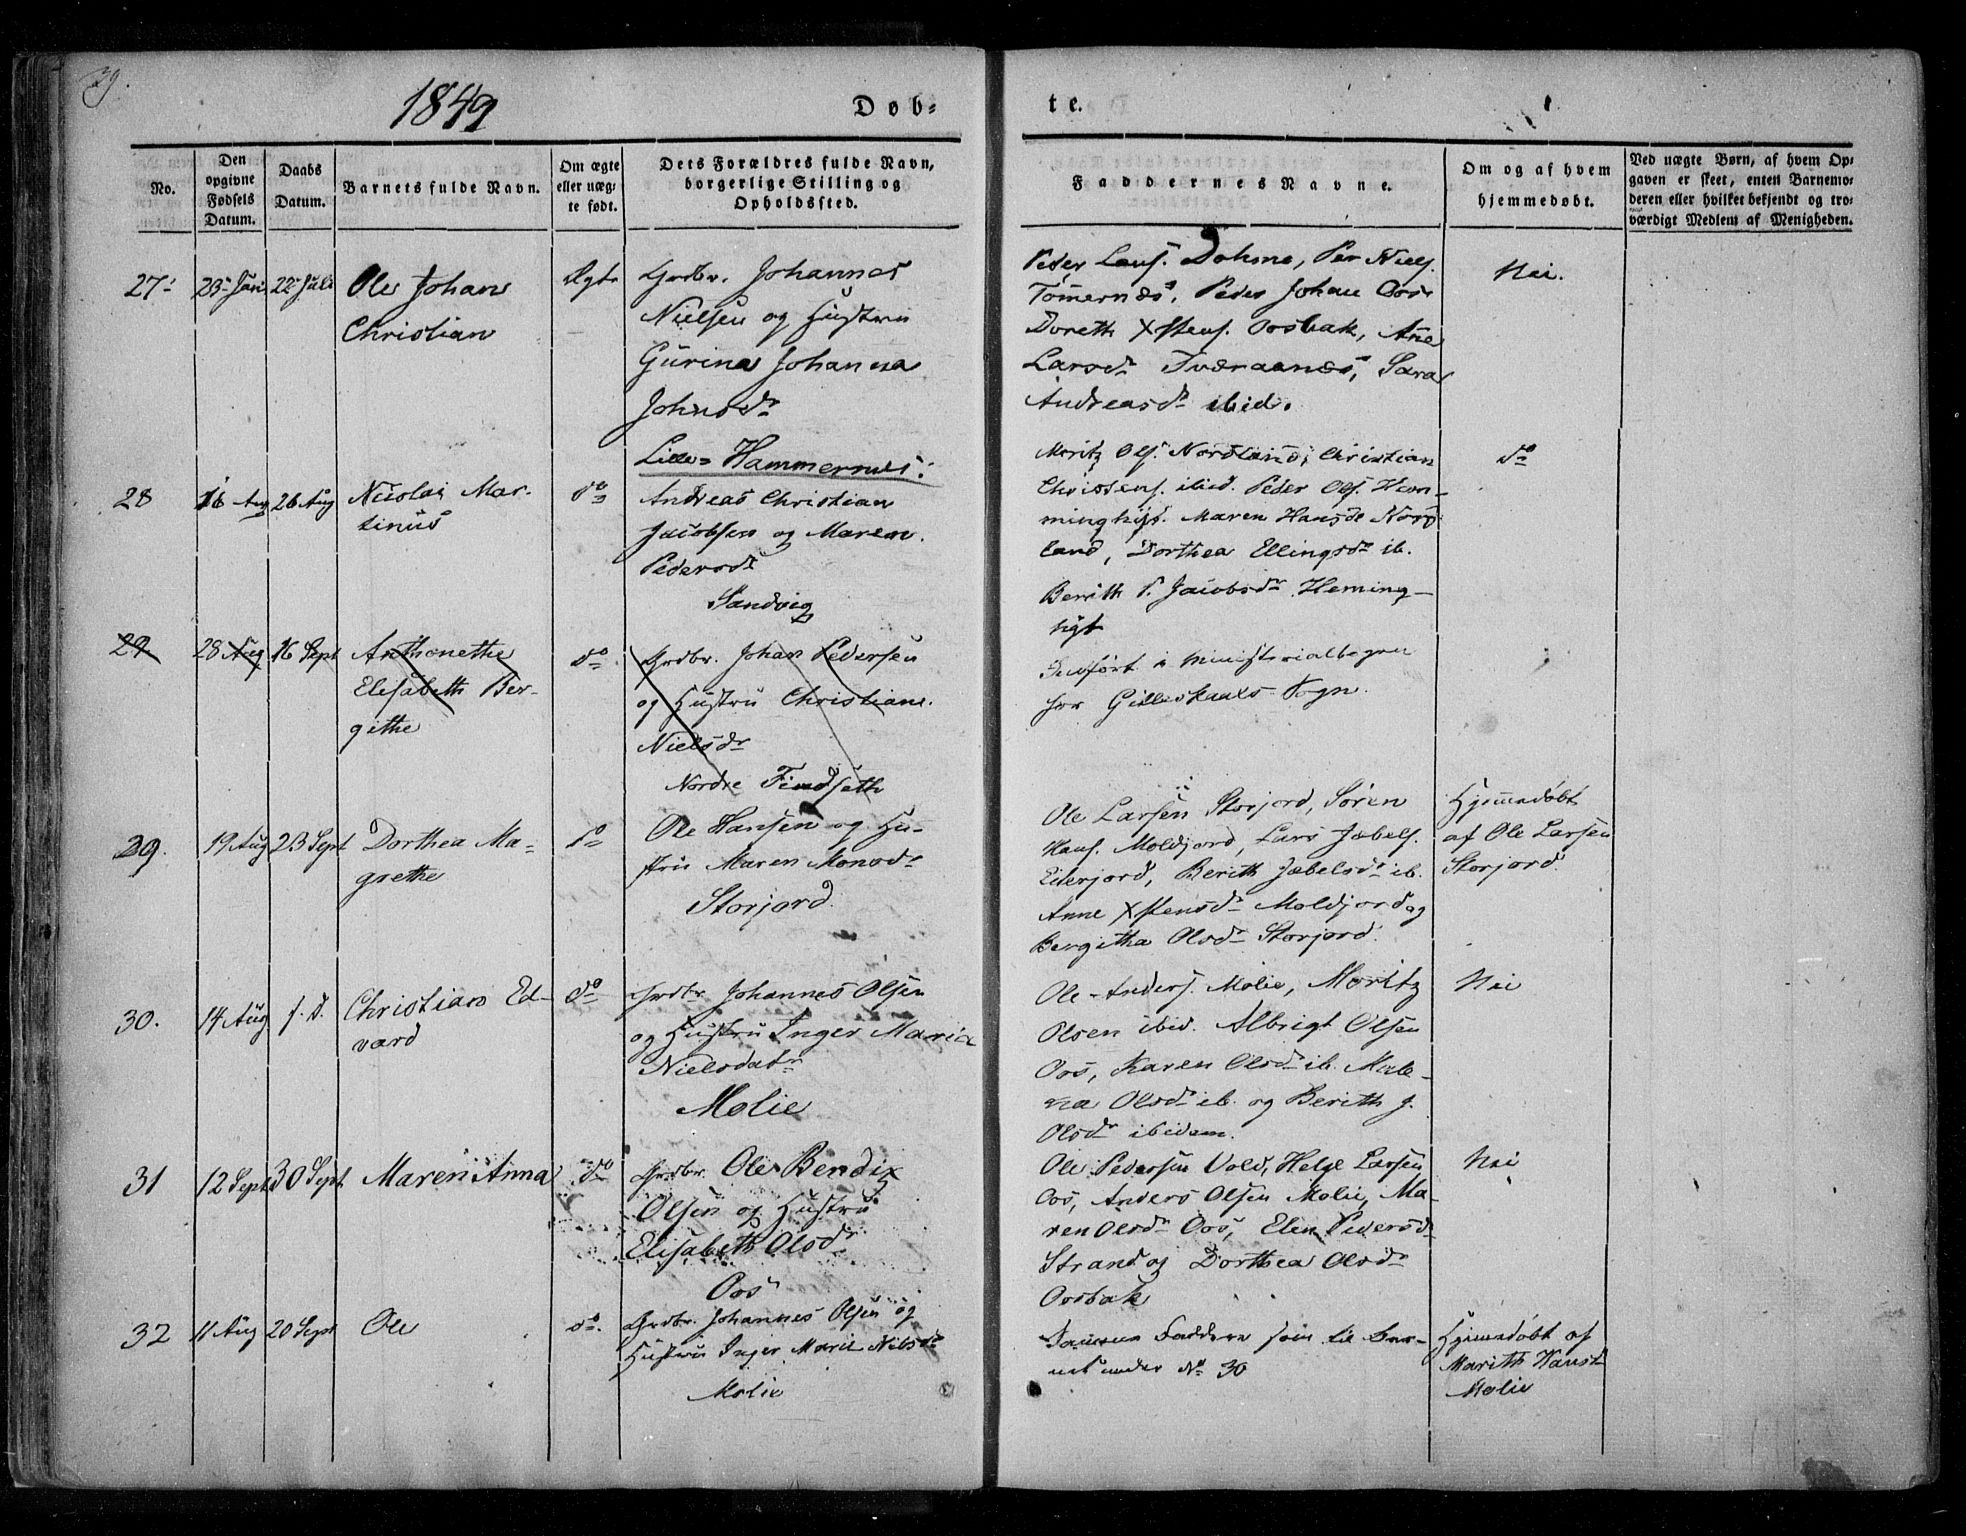 39.
1849
Døb-
te.
No.
Den opgivne Fødsels Datum.
Daabs Datum.
Barnets fulde Navn.
Om ægte eller uæg-te født.
Dets Forældres fulde Navn, borgerlige Stilling og Opholdssted.
Faddernes Navne.
Om og af hvem hjemmedøbt.
Ved uægte Børn, af hvem Op-gaven er skeet, enten Barnemo-deren eller hvilket bekjendt og tro-værdigt Medlem af Menigheden.
27.
22 Juli
Ole Johan
Christian
Ægte
Grdbr. Johannes
Nielsen og Hustru
Gurina Johanna
Johnsdr
Lille-Hammernes.
Peder Johan Oos
Doreth Xstens. Oosbak, Ane
Larsdr Tværaanæs, Sara
Andreasdr ibid.
Nei.
28
16 Aug
26 Aug
Nicolai Mar-
tinus
do
Andreas Christian
Jacobsen og Maren
Pedersdr
Sandvig
Moritz Ols. Nordland, Christian
Christens. ibid. Peder Ols. Hem-
Maren Hansdr Nord
land, Dorthea Ellingsdr ib.
Berith P. Jacobsdr Heming-
do
29
28 Aug
16 Sept
Anthonethe
Elisabeth Ber-
githe
do
Grdbr. Johan Pedersen
og Hustru Christiane
Nielsdr
Nordre Findseth
Indført i Ministerialbogen
for Gilleskaals Sogn.
29.
19 Aug
23 Sept
Dorthea Ma-
grethe
do
Ole Hansen og Hu-
stru Maren Monsdr
Storjord.
Ole Larsen Storjord, Søren
Hans. Moldjord, Lars Jæbels.
Eiterjord, Berith Jæbelsdr ib.
Anne Xstensdr Moldjord og
Bergitha Olsdr Storjord.
Hjemmedøbt
af Ole Larsen
Storjord.
30.
14 Aug
s. D.
Christian Ed-
vard
do
Grdbr. Johannes Olsen
og Hustru Inger Maria
Nielsdatr
Molie
Ole Anders. Molie, Moritz
Olsen ibid. Albrigt Olsen
Oos, Karen Olsdr ib. Male-
na Olsdr ib. og Berith J.
Olsdr ibidem.
Nei
31
12 Sept
30 Sept
Maren Anna
do
Grdbr. Ole Bendix
Olsen og Hustru
Elisabeth Olsdr
Oos
Ole Pedersen Vold, Helge Larsen
Oos, Anders Olsen Molie, Ma-
ren Olsdr Oos, Elen Pedersdr
Strand og Dorthea Olsdr
Oosbak
Nei
32
11 Aug
20 Sept
Ole
do.
Grdbr. Johannes Olsen og
Hustru Inger Marie Nilsdr
Molie
Samme Faddere som til Bar-
net under No 30
Hjemmedøbt af
Marith Hansdr
Molie